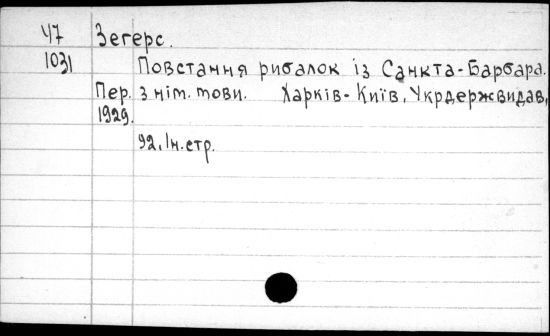 У7 Зегерс.
1031 Повстання рибалок із Санкта-Барбара.
Пер. з нім. мови. Харків-Київ, Укрдержвидав,
1929.
92, Ін. стр.